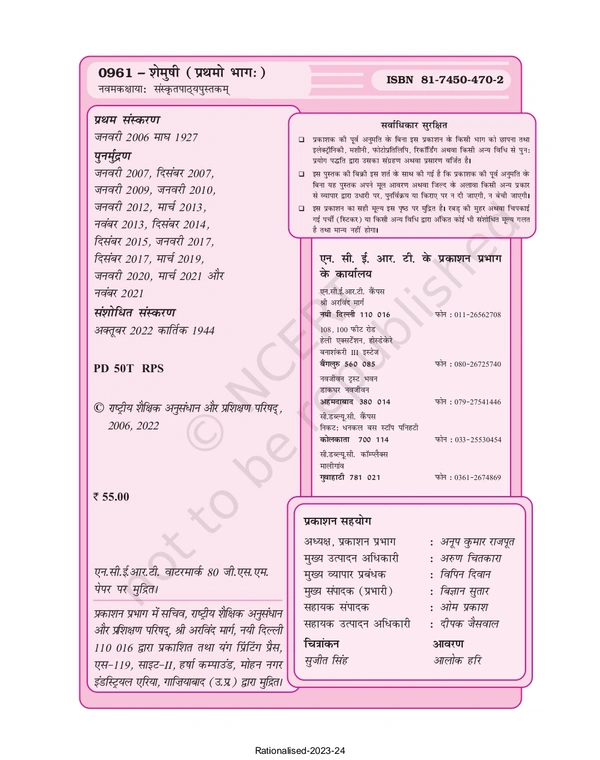 0961 – शेमुषी (प्रथमो भागः)
नवमकक्षायाः संस्कृतपाठ्यपुस्तकम्
ISBN 81-7450-470-2
प्रथम संस्करण
जनवरी 2006 माघ 1927
पुनर्मुद्रण
जनवरी 2007, दिसंबर 2007,
जनवरी 2009, जनवरी 2010,
जनवरी 2012, मार्च 2013,
नवंबर 2013, दिसंबर 2014,
दिसंबर 2015, जनवरी 2017,
दिसंबर 2017, मार्च 2019,
जनवरी 2020, मार्च 2021 और
नवंबर 2021
संशोधित संस्करण
अक्तूबर 2022 कार्तिक 1944
PD 50T RPS
© राष्ट्रीय शैक्षिक अनुसंधान और प्रशिक्षण परिषद्,
2006, 2022
₹ 55.00
एन.सी.ई.आर.टी. वाटरमार्क 80 जी.एस.एम.
पेपर पर मुद्रित।
प्रकाशन प्रभाग में सचिव, राष्ट्रीय शैक्षिक अनुसंधान
और प्रशिक्षण परिषद्, श्री अरविंद मार्ग, नयी दिल्ली
110 016 द्वारा प्रकाशित तथा यंग प्रिंटिंग प्रैस,
एस–119, साइट–II, हर्षा कम्पाउंड, मोहन नगर
इंडस्ट्रियल एरिया, गाज़ियाबाद (उ.प्र.) द्वारा मुद्रित।
सर्वाधिकार सुरक्षित
❑ प्रकाशक की पूर्व अनुमति के बिना इस प्रकाशन के किसी भाग को छापना तथा
इलेक्ट्रॉनिकी, मशीनी, फोटोप्रतिलिपि, रिकॉर्डिंग अथवा किसी अन्य विधि से पुनः
प्रयोग पद्धति द्वारा उसका संग्रहण अथवा प्रसारण वर्जित है।
❑ इस पुस्तक की बिक्री इस शर्त के साथ की गई है कि प्रकाशक की पूर्व अनुमति के
बिना यह पुस्तक अपने मूल आवरण अथवा जिल्द के अलावा किसी अन्य प्रकार
से व्यापार द्वारा उधारी पर, पुनर्विक्रय या किराए पर न दी जाएगी, न बेची जाएगी।
❑ इस प्रकाशन का सही मूल्य इस पृष्ठ पर मुद्रित है। रबड़ की मुहर अथवा चिपकाई
गई पर्ची (स्टिकर) या किसी अन्य विधि द्वारा अंकित कोई भी संशोधित मूल्य गलत
है तथा मान्य नहीं होगा।
एन. सी. ई. आर. टी. के प्रकाशन प्रभाग
के कार्यालय
एन.सी.ई.आर.टी. कैंपस
श्री अरविंद मार्ग
नयी दिल्ली 110 016 फोन : 011-26562708
108, 100 फीट रोड
हेली एक्सटेंशन, होस्डेकेरे
बनाशंकरी III इस्टेज
बैंगलुरु 560 085 फोन : 080-26725740
नवजीवन ट्रस्ट भवन
डाकघर नवजीवन
अहमदाबाद 380 014 फोन : 079-27541446
सी.डब्ल्यू.सी. कैंपस
निकट: धनकल बस स्टॉप पनिहटी
कोलकाता 700 114 फोन : 033-25530454
सी.डब्ल्यू.सी. कॉम्प्लैक्स
मालीगांव
गुवाहाटी 781 021 फोन : 0361-2674869
प्रकाशन सहयोग
अध्यक्ष, प्रकाशन प्रभाग : अनूप कुमार राजपूत
मुख्य उत्पादन अधिकारी : अरुण चितकारा
मुख्य व्यापार प्रबंधक : विपिन दिवान
मुख्य संपादक (प्रभारी) : बिज्ञान सुतार
सहायक संपादक : ओम प्रकाश
सहायक उत्पादन अधिकारी : दीपक जैसवाल
चित्रांकन आवरण
सुजीत सिंह आलोक हरि
© NCERT
not to be republished
Rationalised-2023-24